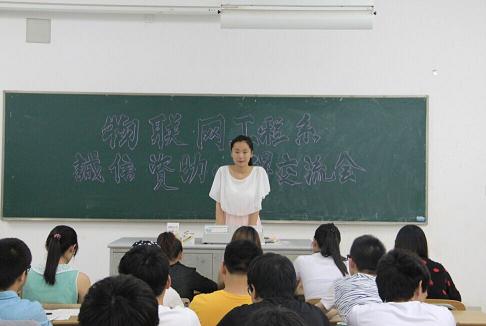 物联网工程系
誠信资助 交流会